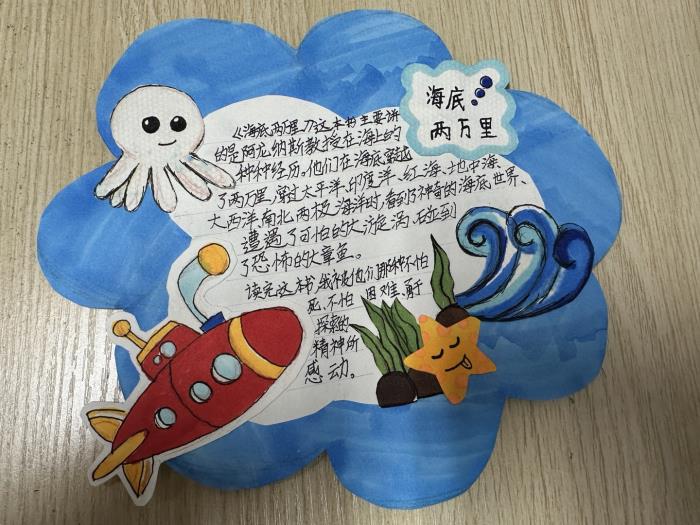 海底
两万里
《海底两万里》这本书主要讲
的是阿龙纳斯教授在海上的
种种经历。他们在海底穿越
了两万里,穿过太平洋、印度洋、红海、地中海、
大西洋、南北两极海洋时,看到了神奇的海底世界、
遭遇了可怕的大漩涡、碰到
了恐怖的大章鱼。
读完这本书,我被他们那种不怕
死、不怕困难、勇于
探索的
精神所
感动。